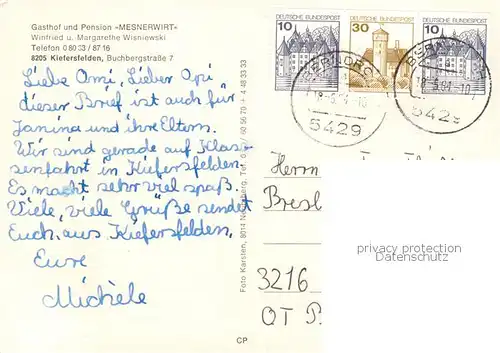 Gasthof und Pension »MESNERWIRT«
Winfried u. Margarethe Wisniewski
Telefon 0 80 33 / 87 16
8205 Kiefersfelden, Buchbergstraße 7
Liebe Omi, Lieber Opi
dieser Brief ist auch für
Janina und ihre Eltern.
Wir sind gerade auf Klas-
senfahrt in Kiefersfelden.
Es macht sehr viel spaß.
Viele, viele Grüße sendet
Euch aus Kiefersfelden,
Eure
Michèle
Foto Karsten, 8014 Neubiberg, Tel. 0 / 60 56 70 + 4 48 33 33
CP
DEUTSCHE BUNDESPOST
10
DEUTSCHE BUNDESPOST
30
DEUTSCHE BUNDESPOST
10
5429
5429
Herrn
Bresl
3216
OT
privacy protection
Datenschutz